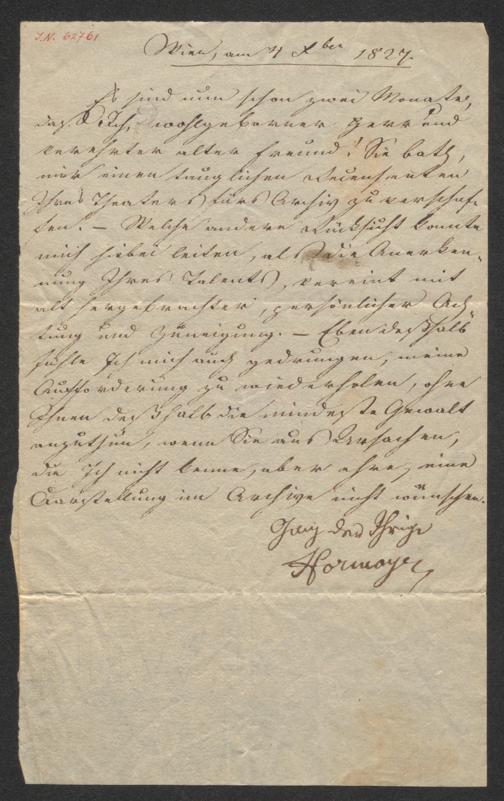 I.N. 62761
Wien, am 4 Xber 1827.
Es sind nun schon zwei Monate,
daß Ich, wohlgeborner Herr und
verehrter alter Freund! Sie bath,
mir einen tauglichen Recensenten
Ihres Theaters fürs Archiv zu verschaf-
fen. – Welche andere Rücksicht konnte
mich hiebei leiten, als die Anerken-
nung Ihres Talents, vereint mit
alt hergebrachter, persönlicher Ach
tung und Zuneigung. – Eben deßhalb
fühle Ich mich auch gedrungen, meine
Aufforderung zu wiederholen, ohne
Ihnen deßhalb die mindeste Gewalt
anzuthun, wenn Sie aus Ursachen,
die Ich nicht kenne, aber ehre, eine
Darstellung im Archive nicht wünschen.
Ganz der Ihrige
Hormayr